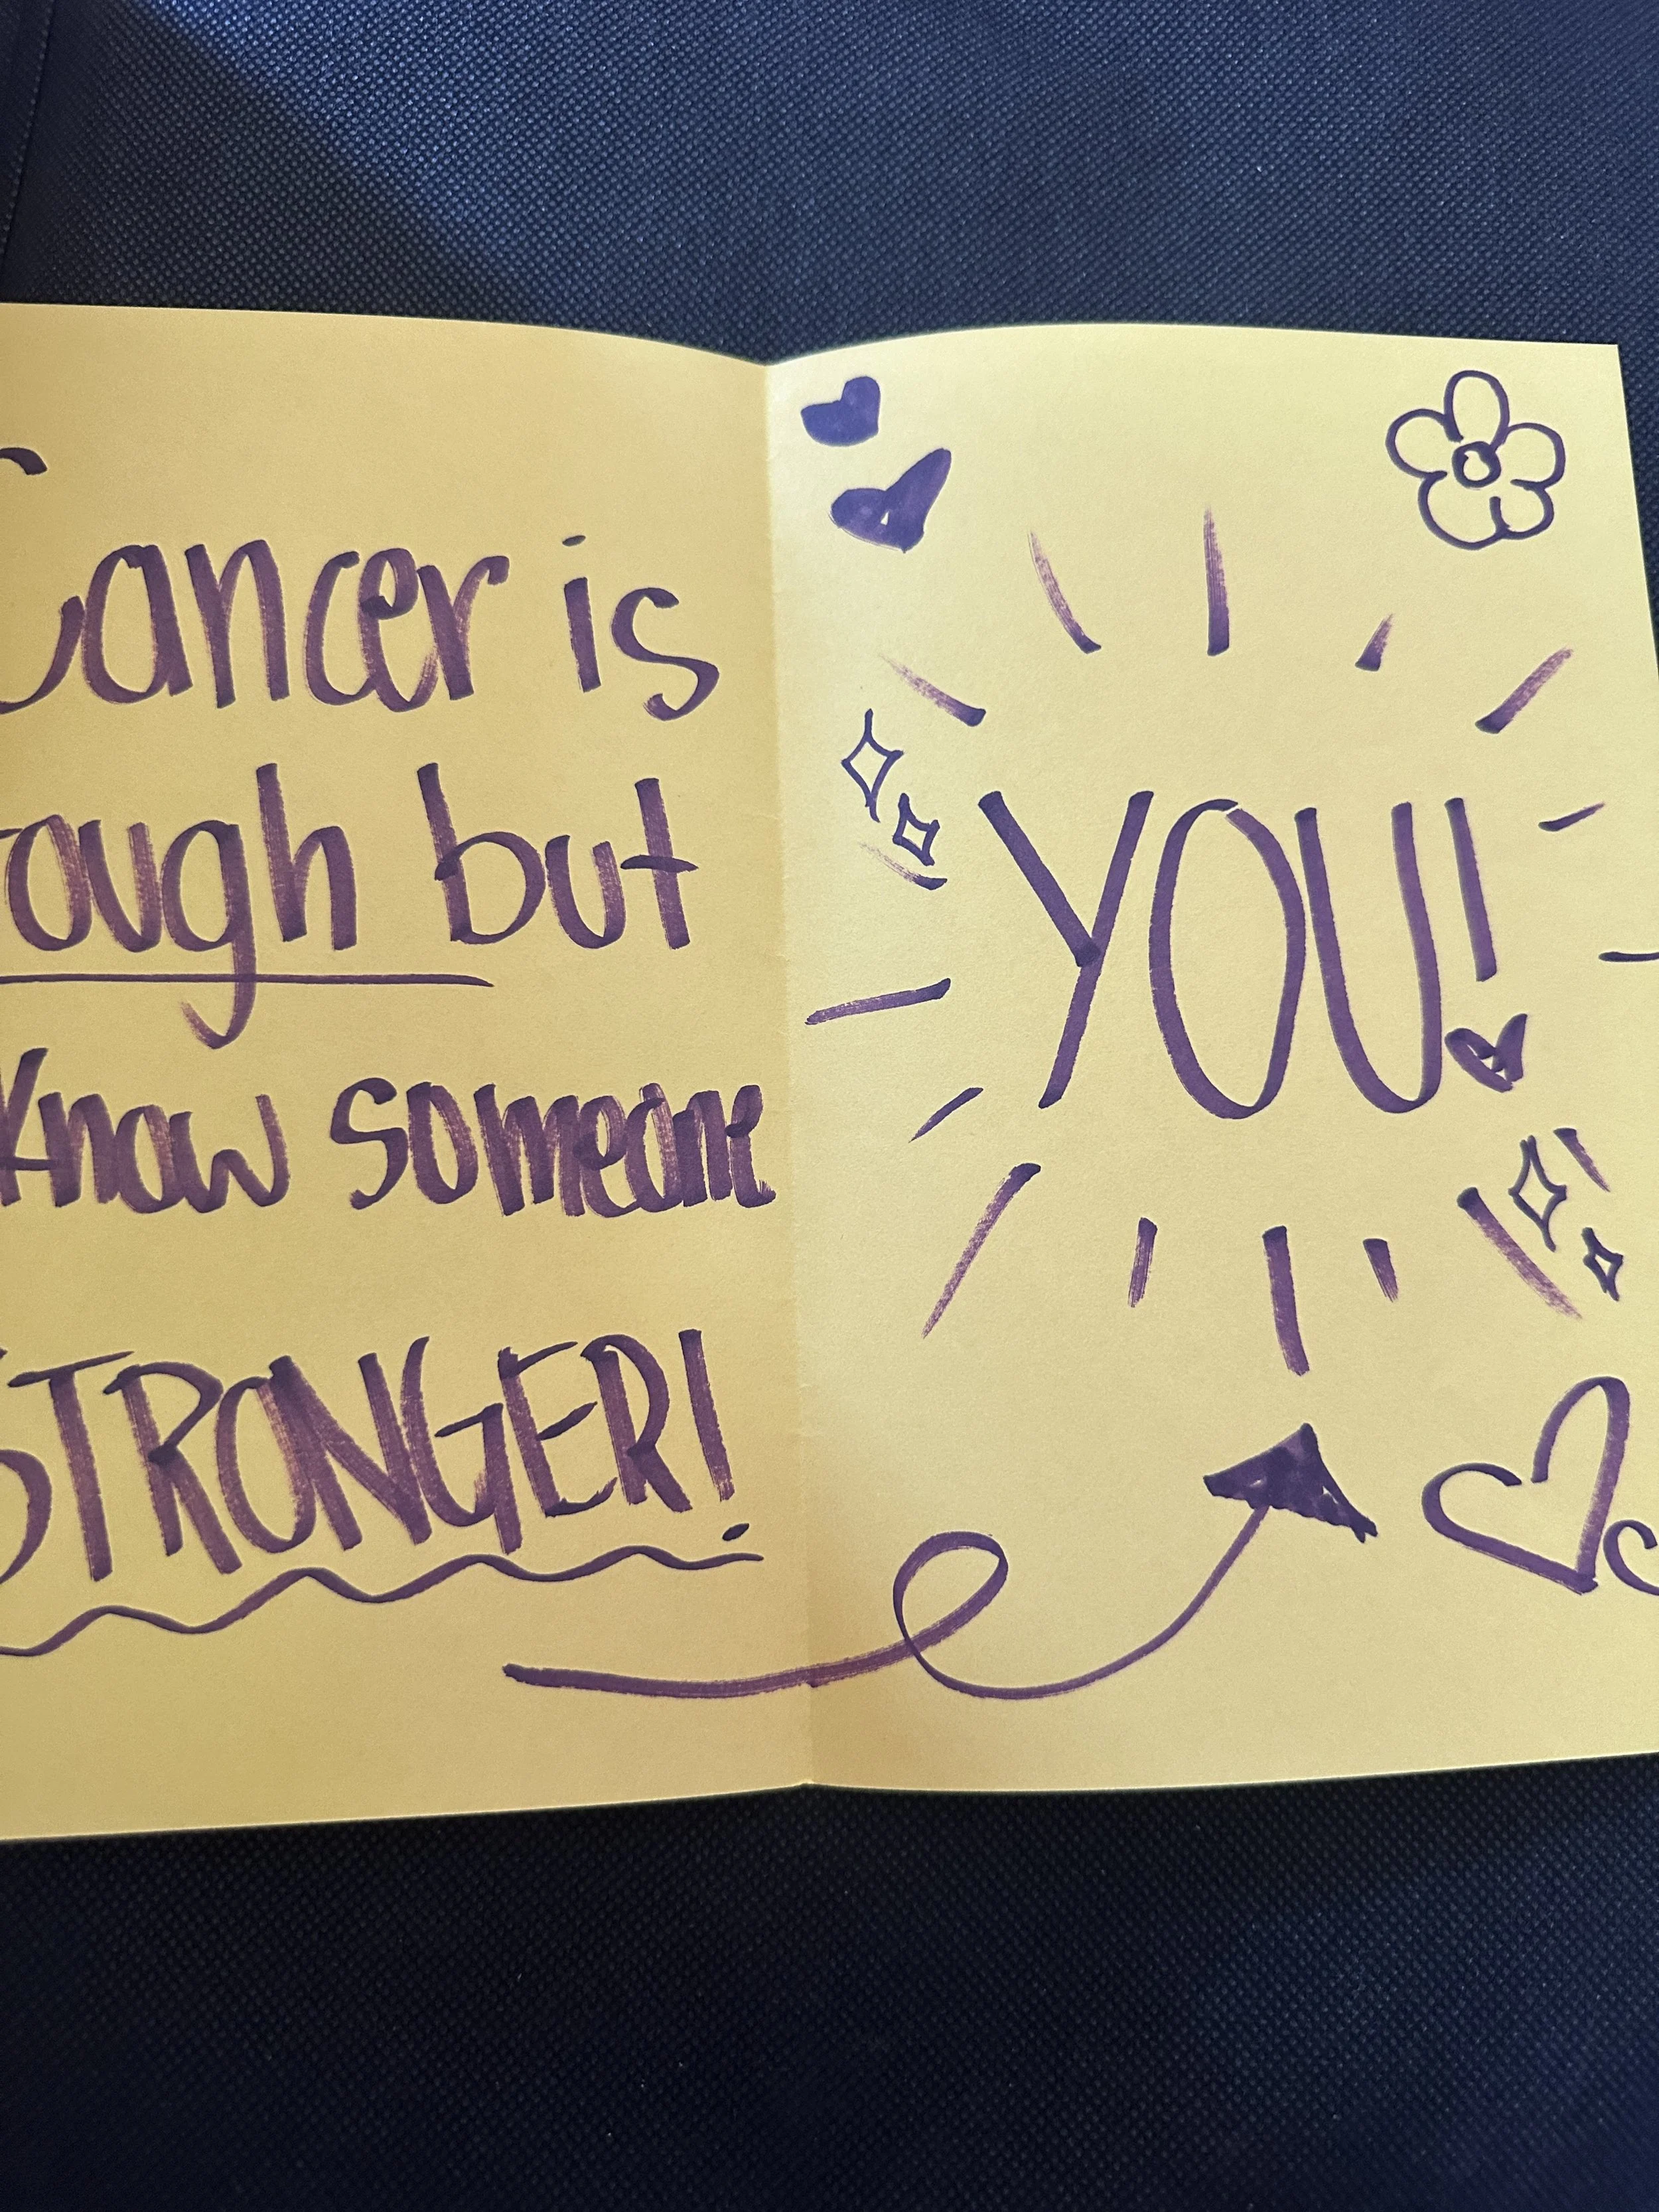 Cancer is
tough but
know someone
STRONGER!
YOU!